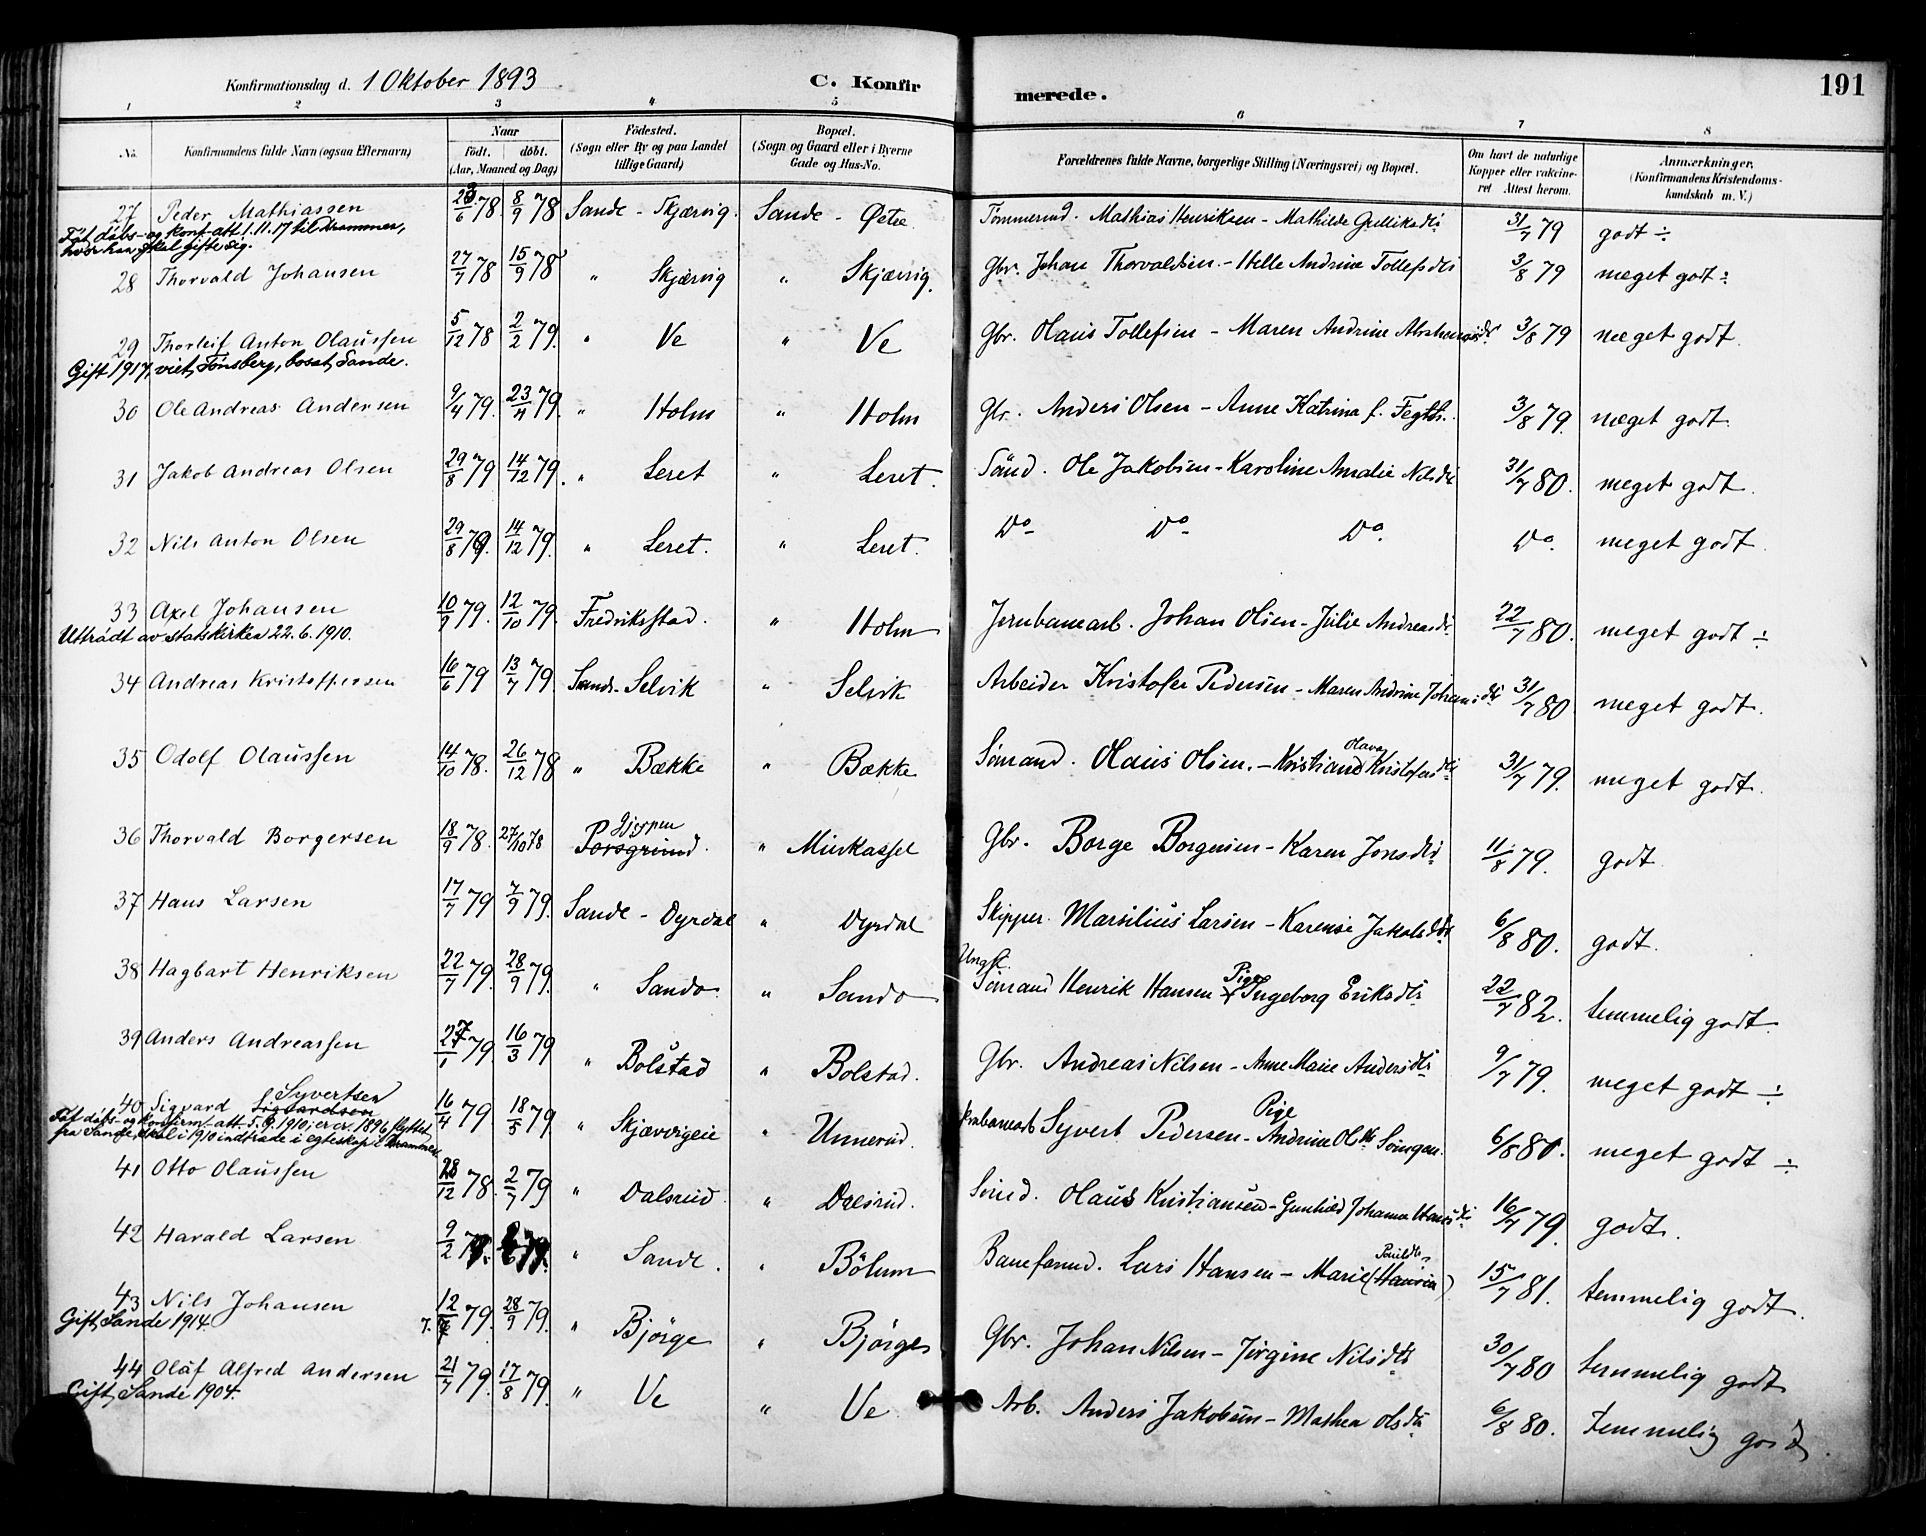 Konfirmationsdag d. 1 Oktober 1893 C. Konfirmerede. 191
1 2 3 4 5 6 7 8
No. Konfirmandens fulde Navn (ogsaa Efternavn) Naar Födt. döbt. (Aar, Maaned og Dag) Födested. (Sogn eller By og paa Landet tillige Gaard) Bopæl. (Sogn og Gaard eller i Byerne Gade og Hus-No. Forældrenes fulde Navne, borgerlige Stilling (Næringsvei) og Bopæl. Om havt de naturlige Kopper eller vakcineret Attest herom. Anmærkninger. (Konfirmandens Kristendomskundskab m. V.)
27 Peder Mathiassen 6 78. 8/9 78 Sande - Skjærvig. Sande - Mathias Henriksen - Mathilde Gulliksdtr 31/7 79 godt ÷
Fåt dåbs- og konf. att. 1.11.17 til Drammen, hvor han skal gifte sig.
28 Thorvald Johansen 27/7 78 15/9 78 " Skjærvig " Skjærvig. Gbr. Johan Thorvaldsen - Helle Andrine Tollefsdtr 3/8 79 meget godt ÷
29 Thorleif Anton Olaussen 5/12 78 2/2 79. " Ve " Ve Gbr. Olaus Tollefsen - Maren Andrine Abrahamsdtr 3/8 79 meget godt.
Gift 1917, viet Tönsberg, bosat Sande.
30 Ole Andreas Andersen 9/4 79. 23/4 79. " Holm " Holm Gbr. Anders Olsen - Anne Katrina f. Fegth. 3/8 79. meget godt.
31 Jakob Andreas Olsen 29/8 79 14/12 79. " Leret " Leret. Sömd. Ole Jakobsen - Karoline Amalie Nilsdtr 31/7 80. meget godt.
32 Nils Anton Olsen 29/8 79. 14/12 79. " Leret. " Leret. Do Do Do. Do. meget godt.
33 Axel Johansen 10/9 79. 12/10 79. Fredriksstad. " Holm Jernbanearb. Johan Olsen - Julie Andreasdtr 22/7 80. meget godt ÷
Uttrådt av statskirken 22.6.1910.
34 Andreas Kristoffersen 16/6 79 13/7 79. Sande - Selvik " Selvik Arbeider Kristofer Pedersen - Maren Andrine Johansdtr 31/7 80 meget godt.
35 Odolf Olaussen 14/10 78. 26/12 78 " Bække " Bække Sömand. Olaus Olsen. - Kristiane Olava Kristofersdtr 31/7 79. meget godt.
36 Thorvald Borgersen 18/9 78. 27/10 78 Gjerpen Porsgrund. " Mierkassel Gbr. Borge Borgersen - Karen Jonsdtr 11/8 79. godt
37 Hans Larsen 17/7 79 7/9 79. Sande - Dyrdal " Dyrdal Skipper. Marsilius Larsen - Karense Jakobsdtr 6/8 80. godt.
38 Hagbart Henriksen 22/7 79. 28/9 79. " Sando " Sando Ungk. Sömand Henrik Hansen + Pige Ingeborg Eriksdtr 22/7 82. temmelig godt
39 Anders Andreassen 27/1 79. 16/3 79 " Bolstad " Bolstad. Gbr. Andreas Nilsen - Anne Marie Andersdtr 9/7 79. meget godt ÷
40 Sigvard Syvertsen Sigvardsen 16/4 79. 18/5 79. " Skjævvigeie " Unnerud. Syvert Pedersen - Pige Andrine 6/8 80. meget godt ÷
Fåt dåbs- og konfirm.-att. 5.9.1910; er er 1896 flyttet fra Sande, skal i 1910 indtræde i egteskap i Drammen
41 Otto Olaussen 28/12 78. 2/7 79 " Dalsrud. " Dalsrud. Sömd. Olaus Kristiansen - Gunhild Johanne Hansdtr 16/7 79. godt.
42 Harald Larsen 9/2 79. " Sande. " Bölum Baneformd. Lars Hansen - Marie (Hansen) 15/7 81. temmelig godt.
43 Nils Johansen 12 79. 28/9 79. " Bjørge " Bjørge Gbr. Johan Nilsen - Jörgine Nilsdtr 30/7 80 temmelig godt
Gift, Sande 1914.
44 Olaf Alfred Andersen 21/7 79. 17/8 79. " Ve " Ve Arb. Anders Jakobsen - Mathea Olsdtr 6/8 80. temmelig godt.
Gift, Sande 1904.